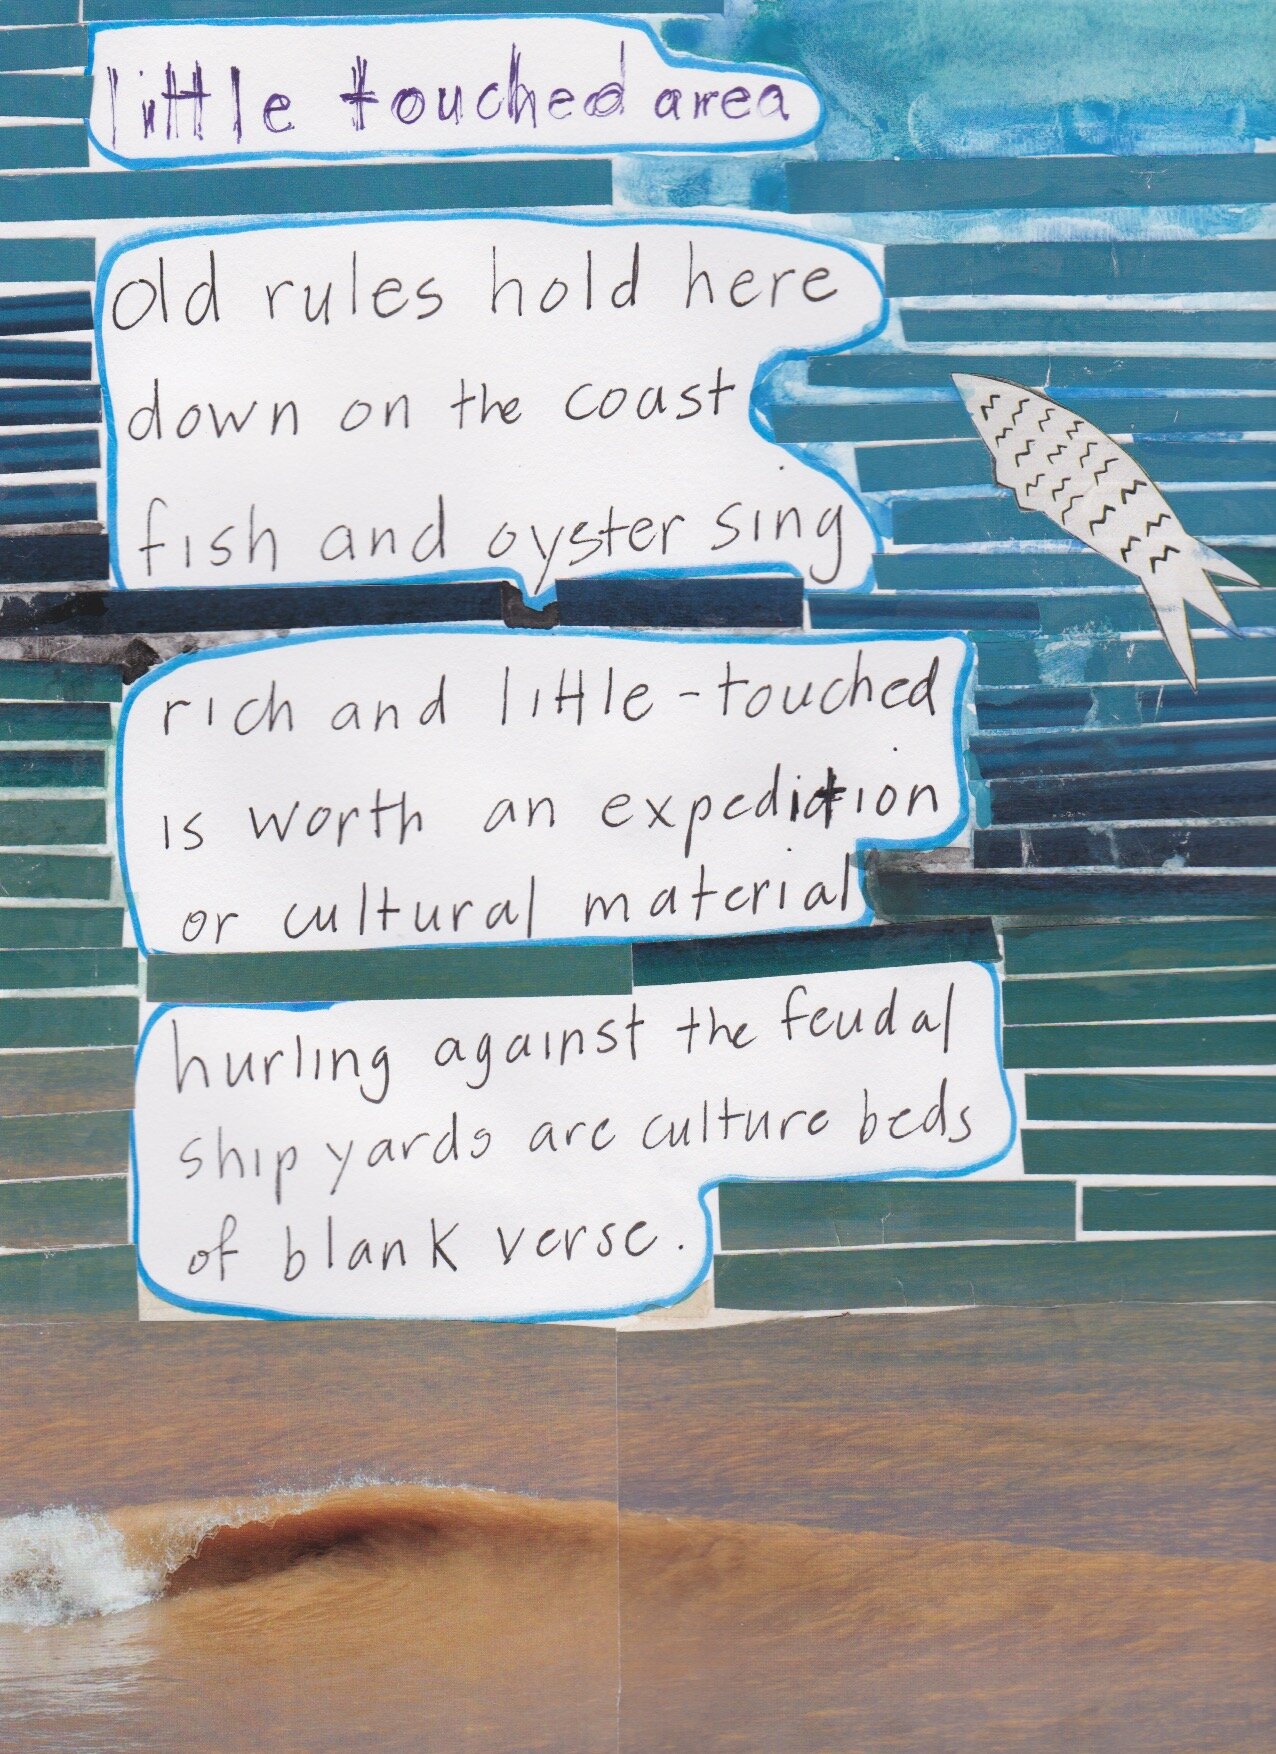 little touched area
old rules hold here
down on the coast
fish and oyster sing
rich and little-touched
is worth an expedition
or cultural material
hurling against the feudal
ship yards are culture beds
of blank verse.